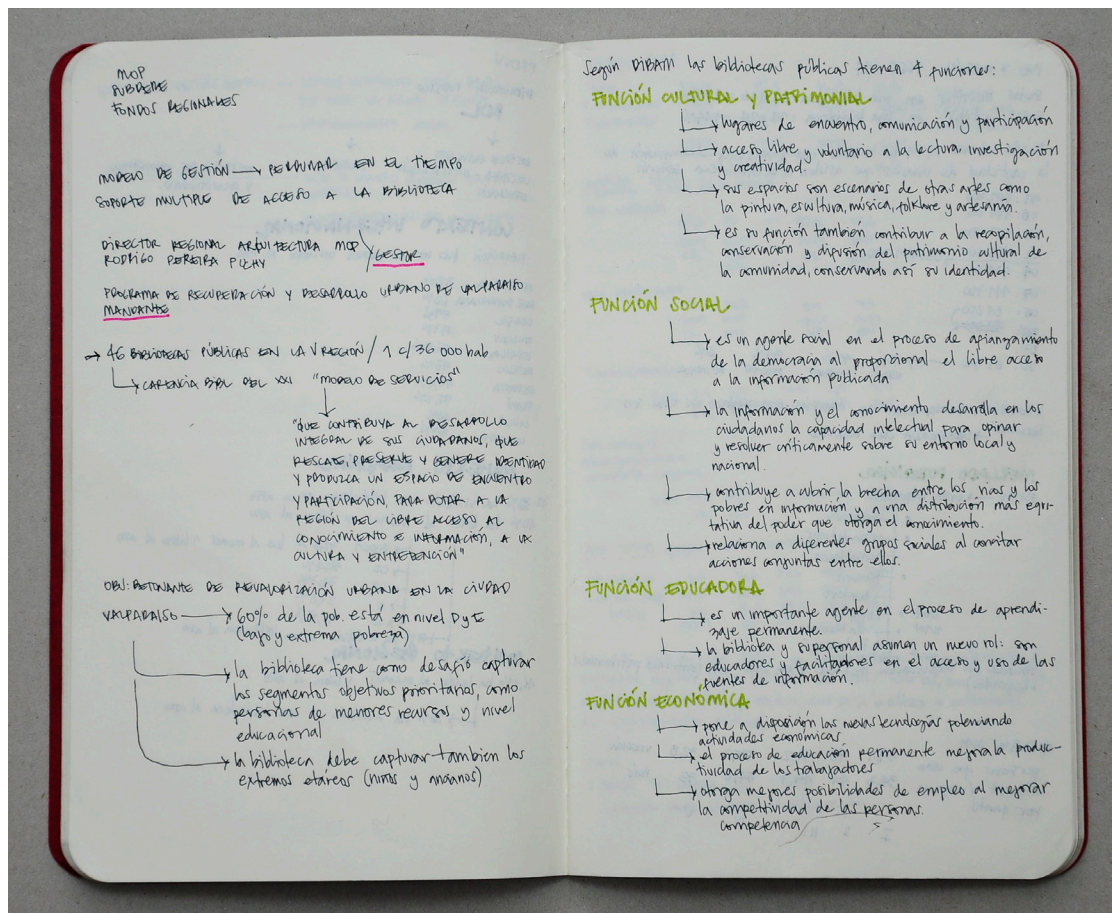 MOP
SUBDERE
FONDOS REGIONALES
MODELO DE GESTIÓN → PERDURAR EN EL TIEMPO
SOPORTE MULTIPLE DE ACCESO A LA BIBLIOTECA
DIRECTOR REGIONAL ARQUITECTURA MOP
RODRIGO PEREIRA PICHY
GESTOR
PROGRAMA DE RECUPERACIÓN Y DESARROLLO URBANO DE VALPARAISO
MANDANTE
→ 46 BIBLIOTECAS PÚBLICAS EN LA V REGIÓN / 1 c/36 000 hab
CARENCIA BIBL DEL XXI "MODELO DE SERVICIOS"
"QUE CONTRIBUYA AL DESARROLLO
INTEGRAL DE SUS CIUDADANOS, QUE
RESCATE, PRESERVE Y GENERE IDENTIDAD
Y PRODUZCA UN ESPACIO DE ENCUENTRO
Y PARTICIPACIÓN, PARA DOTAR A LA
REGIÓN DEL LIBRE ACCESO AL
CONOCIMIENTO E INFORMACIÓN, A LA
CULTURA Y ENTRETENCIÓN"
OBJ: DETONANTE DE REVALORIZACIÓN URBANA EN LA CIUDAD
VALPARAISO → 60% de la pob. está en nivel D y E
(bajo y extrema pobreza)
la biblioteca tiene como desafío capturar
los segmentos objetivos prioritarios, como
personas de menores recursos y nivel
educacional
la biblioteca debe capturar tambien los
extremos etáreos (niños y ancianos)
Según DIBAM las bibliotecas públicas tienen 4 funciones:
FUNCIÓN CULTURAL y PATRIMONIAL
lugares de encuentro, comunicación y participación
acceso libre y voluntario a la lectura, investigación
y creatividad.
sus espacios son escenarios de otras artes como
la pintura, escultura, música, folklore y artesanía.
es su función también contribuir a la recopilación,
conservación y difusión del patrimonio cultural de
la comunidad, conservando así su identidad.
FUNCIÓN SOCIAL
es un agente social en el proceso de afianzamiento
de la democracia al proporcional el libre acceso
a la información publicada
la información y el conocimiento desarrolla en los
ciudadanos la capacidad intelectual para opinar
y resolver críticamente sobre su entorno local y
nacional.
contribuye a cubrir la brecha entre los ricos y los
pobres en información y a una distribución más equi-
tativa del poder que otorga el conocimiento.
relaciona a diferentes grupos sociales al concitar
acciones conjuntas entre ellos.
FUNCIÓN EDUCADORA
es un importante agente en el proceso de aprendi-
zaje permanente.
la biblioteca y su personal asumen un nuevo rol: son
educadores y facilitadores en el acceso y uso de las
fuentes de información.
FUNCIÓN ECONÓMICA
pone a disposición las nuevas tecnologías potenciando
actividades económicas
el proceso de educación permanente mejora la produc-
tividad de los trabajadores
otorga mejores posibilidades de empleo al mejorar
la competitividad de las personas.
competencia